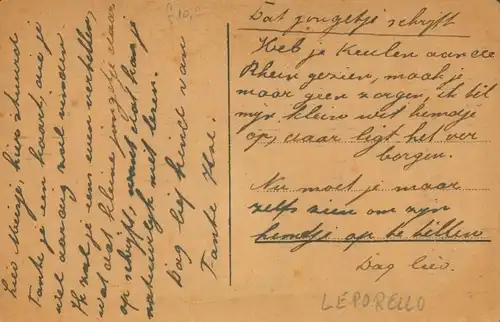 f 10,-
Lieve Meisje, hier stuurd
Tante je een kaart, die je
wel aardig zal vinden
Ik zal je eens even vertellen,
wat dat kleine jongetje daar
op schrijft, want dat kan je
natuurlijk niet lezen.
Dag lief kind van
Tante Hoe.
Dat jongetje schrijft
Heb je Keulen aan de
Rhein gezien, maak je
maar geen zorgen, ik til
mijn klein wit hemdje
op, daar ligt het ver
borgen.
Nu moet je maar
zelfs zien om zijn
hemdje op te tillen
Dag lieve.
LEPORELLO